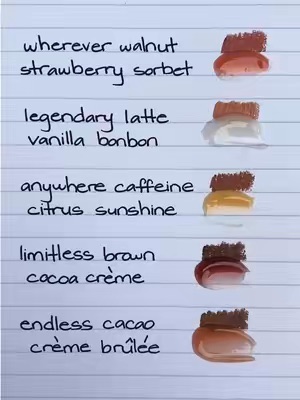 wherever walnut
strawberry sorbet
legendary latte
vanilla bonbon
anywhere caffeine
citrus sunshine
limitless brown
cocoa crème
endless cacao
crème brûlée